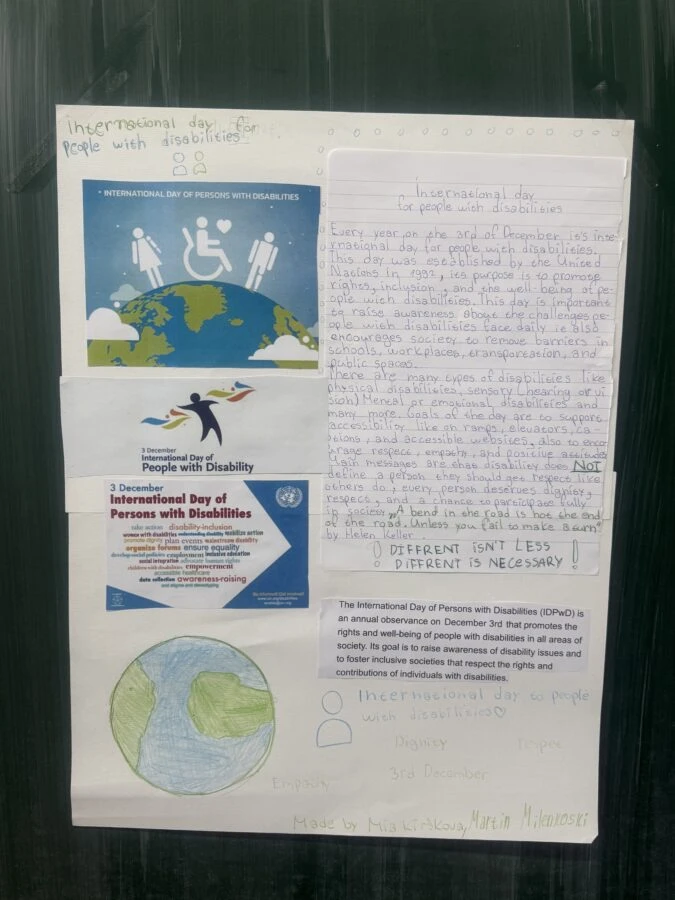 International day for
people with disabilities
INTERNATIONAL DAY OF PERSONS WITH DISABILITIES
3 December
International Day of
People with Disability
3 December
International Day of
Persons with Disabilities
take action disability-inclusion
women with disabilities understanding disability mobilize action
promote dignity plan events mainstream disability
organize forums ensure equality
develop social policies employment inclusive education
social integration advocate human rights
children with disabilities empowerment
accessible healthcare
data collection awareness-raising
end stigma and stereotyping
Be informed! Get involved!
International day
for people with disabilities
Every year, on the 3rd of December it's inte-
rnational day for people with disabilities.
This day was established by the United
Nations in 1992, its purpose is to promote
rights, inclusion, and the well-being of pe-
ople with disabilities. This day is important
to raise awareness about the challenges pe-
ople with disabilities face daily ie also
encourages society to remove barriers in
schools, workplaces, transportation, and
public spaces.
There are many types of disabilities like
physical disabilities, sensory (hearing or vi
sion) Mental or emotional disabilities and
many more. Goals of the day are to support
accessibility like on ramps, elevators, ca-
ptions, and accessible websites, also to enco
urage respect, empathy, and positive attitude
Main messages are that disability does NOT
define a person, they should get respect like
others do, every person deserves dignity,
respect, and a chance to participate fully
in society „A bend in the road is not the end
of the road. Unless you fail to make a turn"
by Helen Keller.
! DIFFRENT ISN'T LESS !
DIFFRENT IS NECESSARY
The International Day of Persons with Disabilities (IDPwD) is
an annual observance on December 3rd that promotes the
rights and well-being of people with disabilities in all areas of
society. Its goal is to raise awareness of disability issues and
to foster inclusive societies that respect the rights and
contributions of individuals with disabilities.
International day to people
with disabilities
Dignity
3rd December
Empathy
Made by Mia Kirskova, Martin Milenkoski